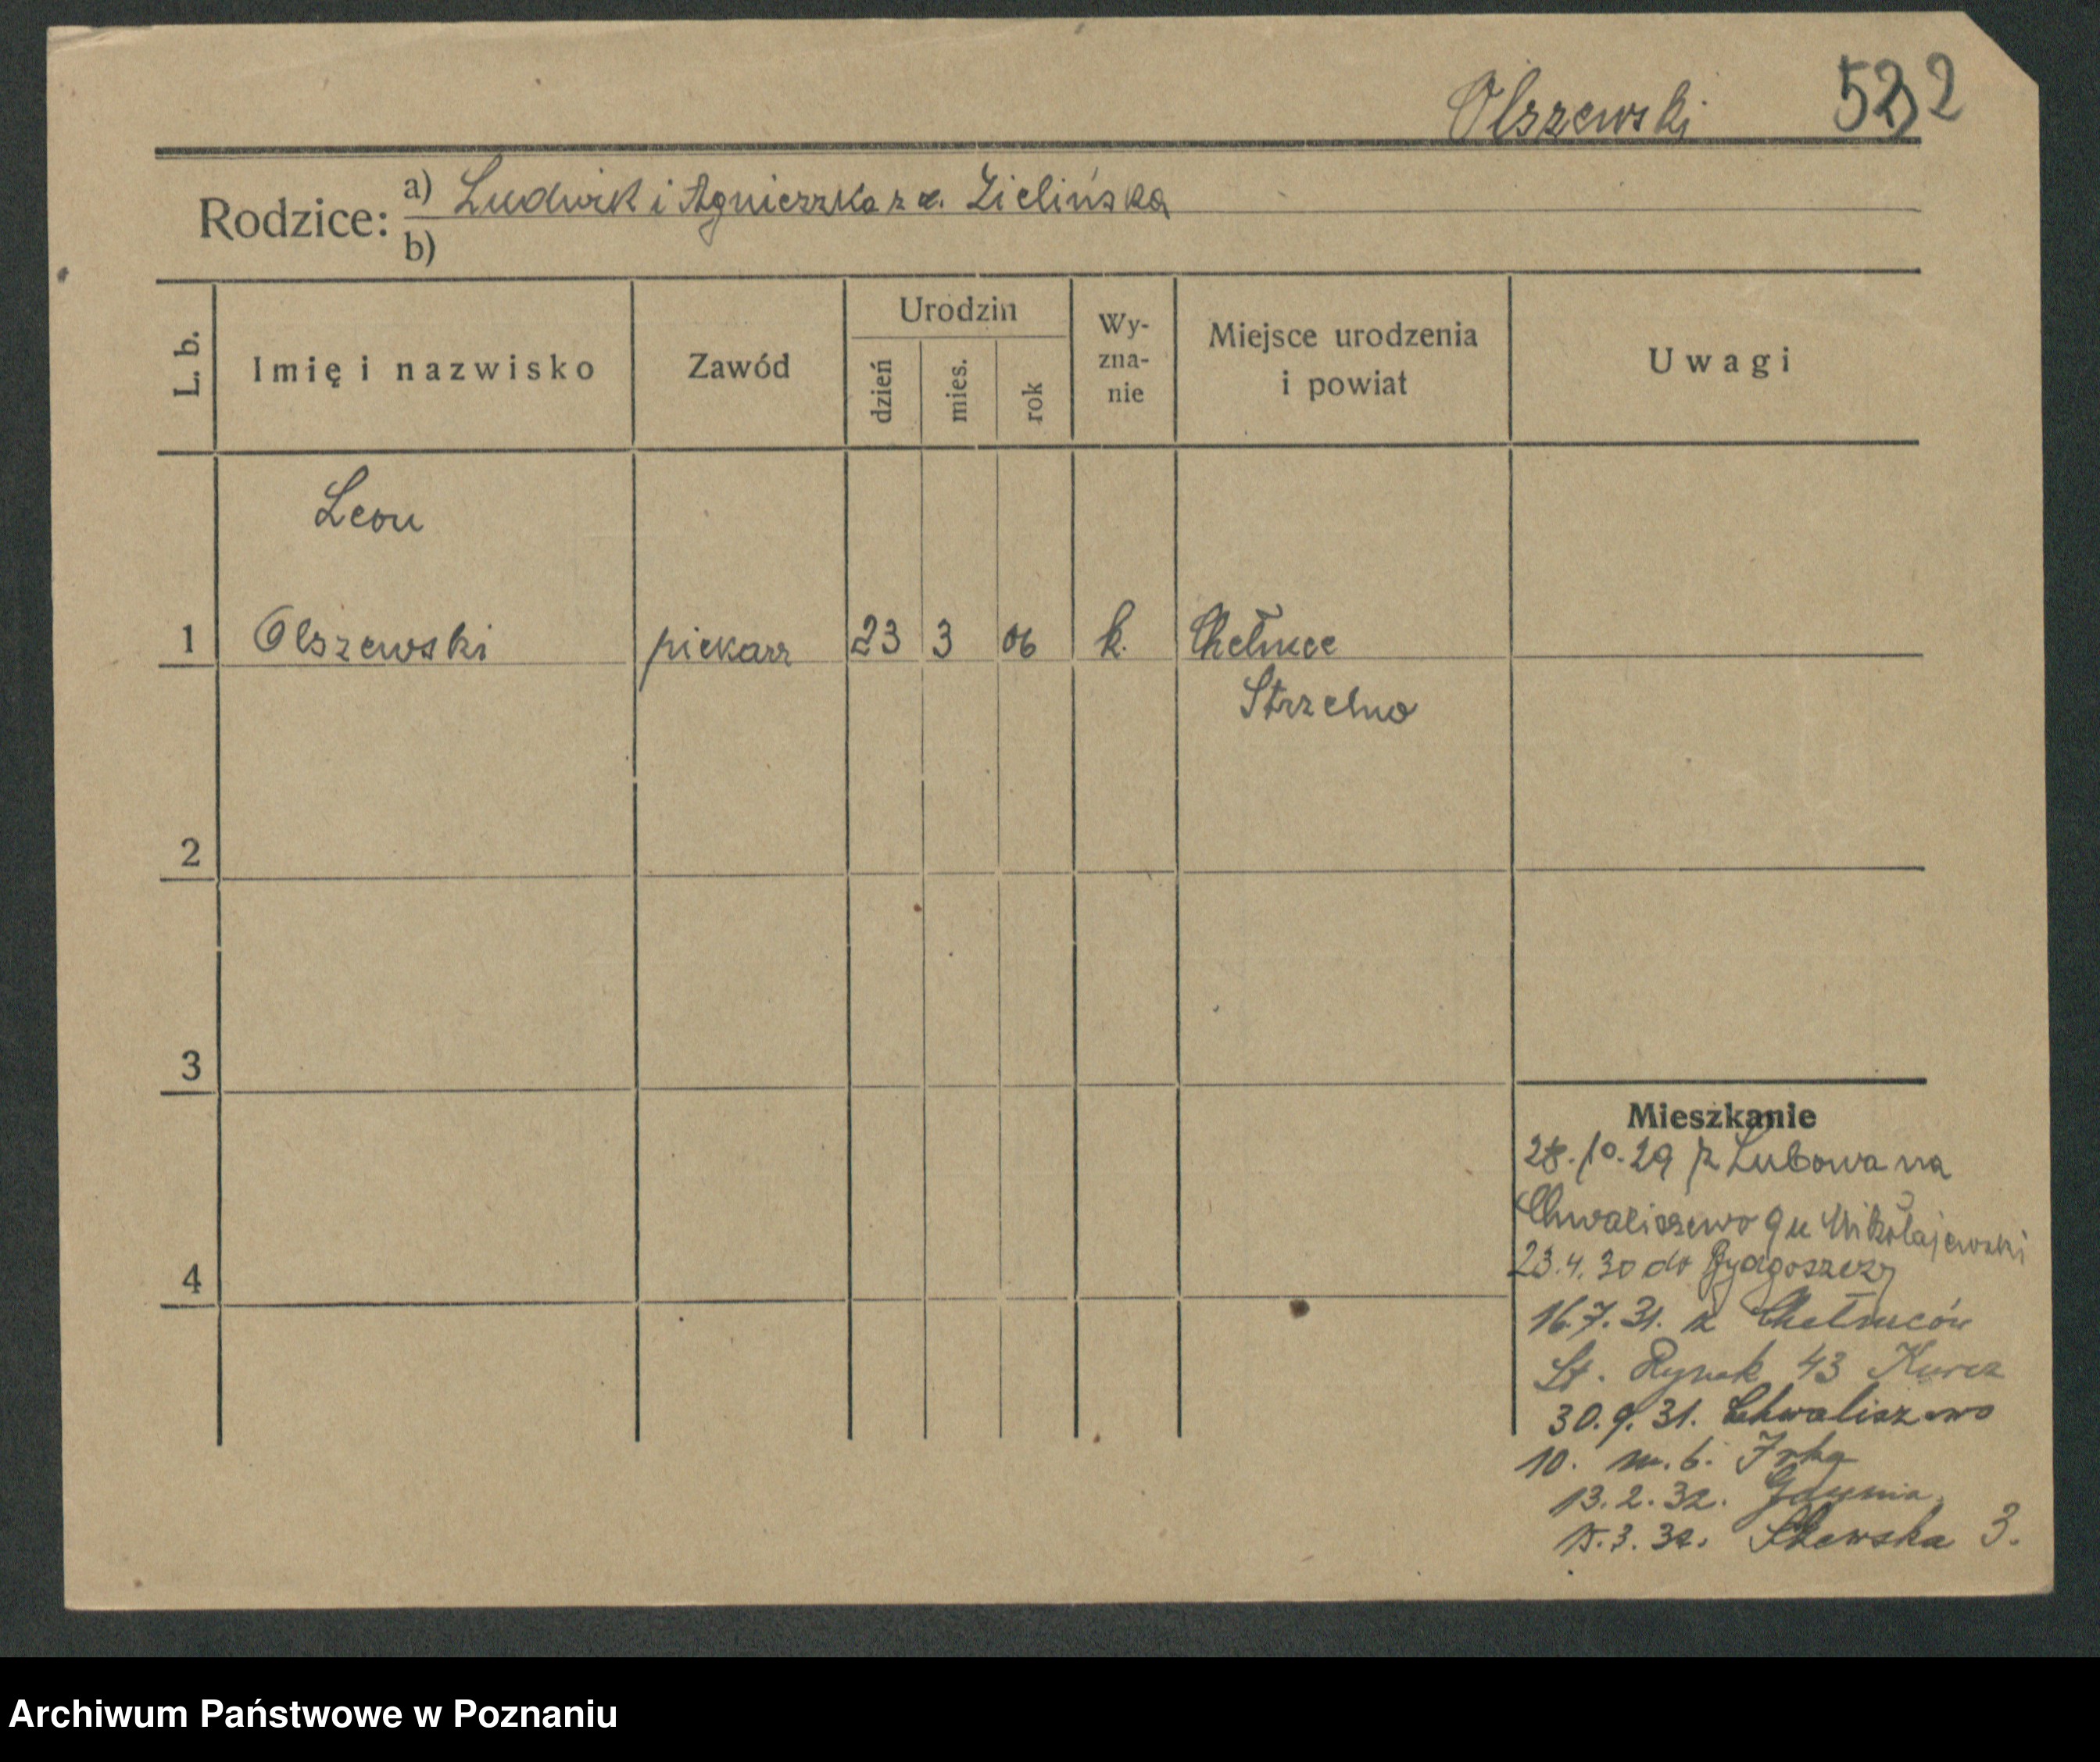 Olszewski 522
Rodzice: a) Ludwik i Agnieszka z d. Zielińska
b)
L. b.
Imię i nazwisko
Zawód
Urodzin
dzień
mies.
rok
Wy-
zna-
nie
Miejsce urodzenia
i powiat
Uwagi
Leon
1 Olszewski piekarz 23 3 06 k. Chełmce
Strzelno
2
3
4
Mieszkanie
28.10.29 z Lubowa na
Chwaliszewo 9 u Mikołajewski
23.4.30 do Bydgoszczy
16.7.31. z Chełmców
St. Rynek 43 Kurcz
30.9.31. Chwaliszewo
10. m. 6.
13.2.32. Gdynia
15.3.32. 3.
Archiwum Państwowe w Poznaniu